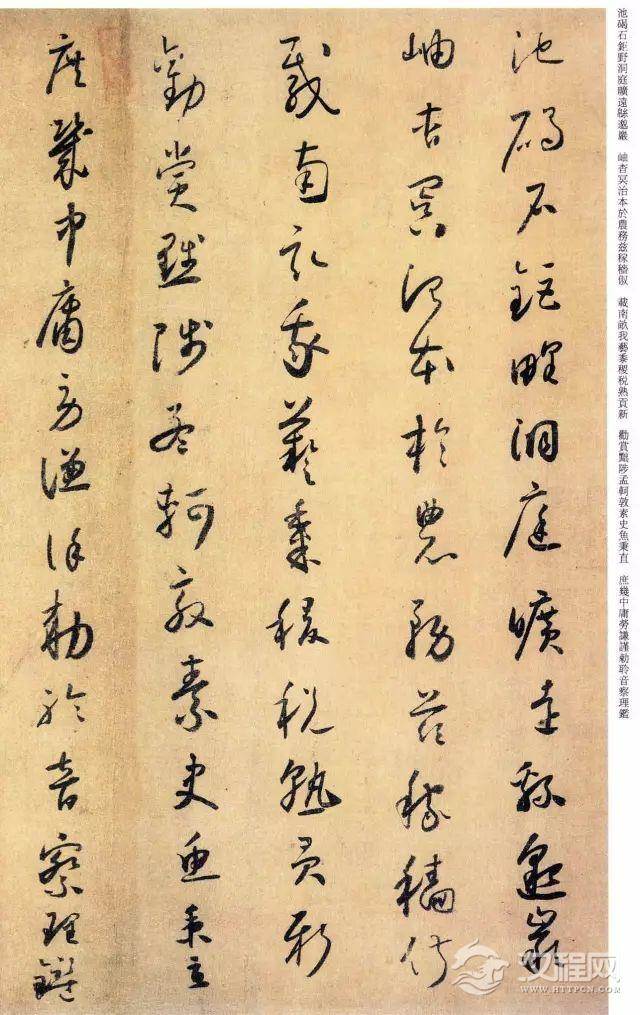 池碣石鉅野洞庭曠遠緜邈巖
岫杳冥治本於農務茲稼穡俶
載南畝我藝黍稷稅熟貢新
勸賞黜陟孟軻敦素史魚秉直
庶幾中庸勞謙謹勑聆音察理鑑
池碣石鉅野洞庭曠遠緜邈巖 岫杳冥治本於農務茲稼穡俶 載南畝我藝黍稷稅熟貢新 勸賞黜陟孟軻敦素史魚秉直 庶幾中庸勞謙謹勑聆音察理鑑
汉程网
WWW.HTTPCN.COM